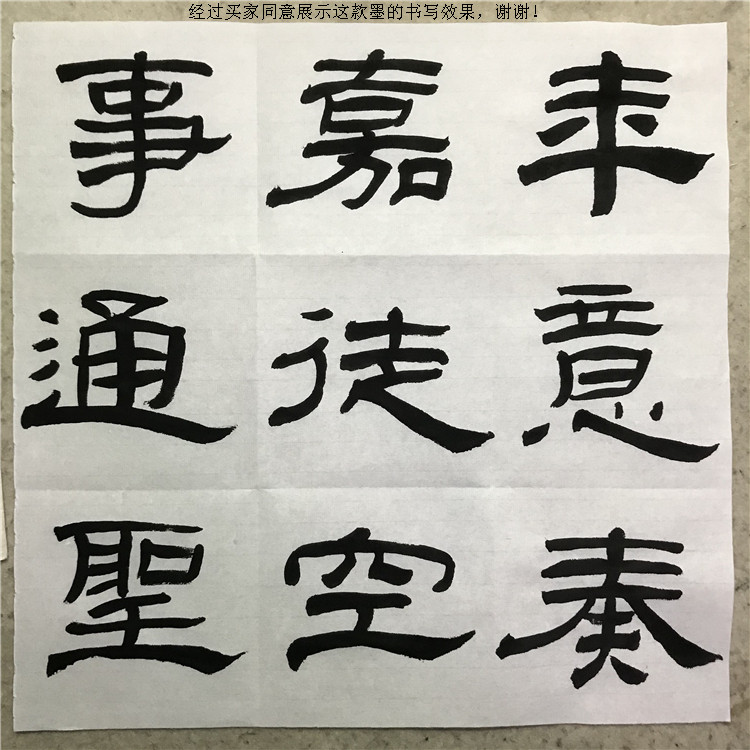 经过买家同意展示这款墨的书写效果，谢谢！
年意奏
嘉徒空
事通聖